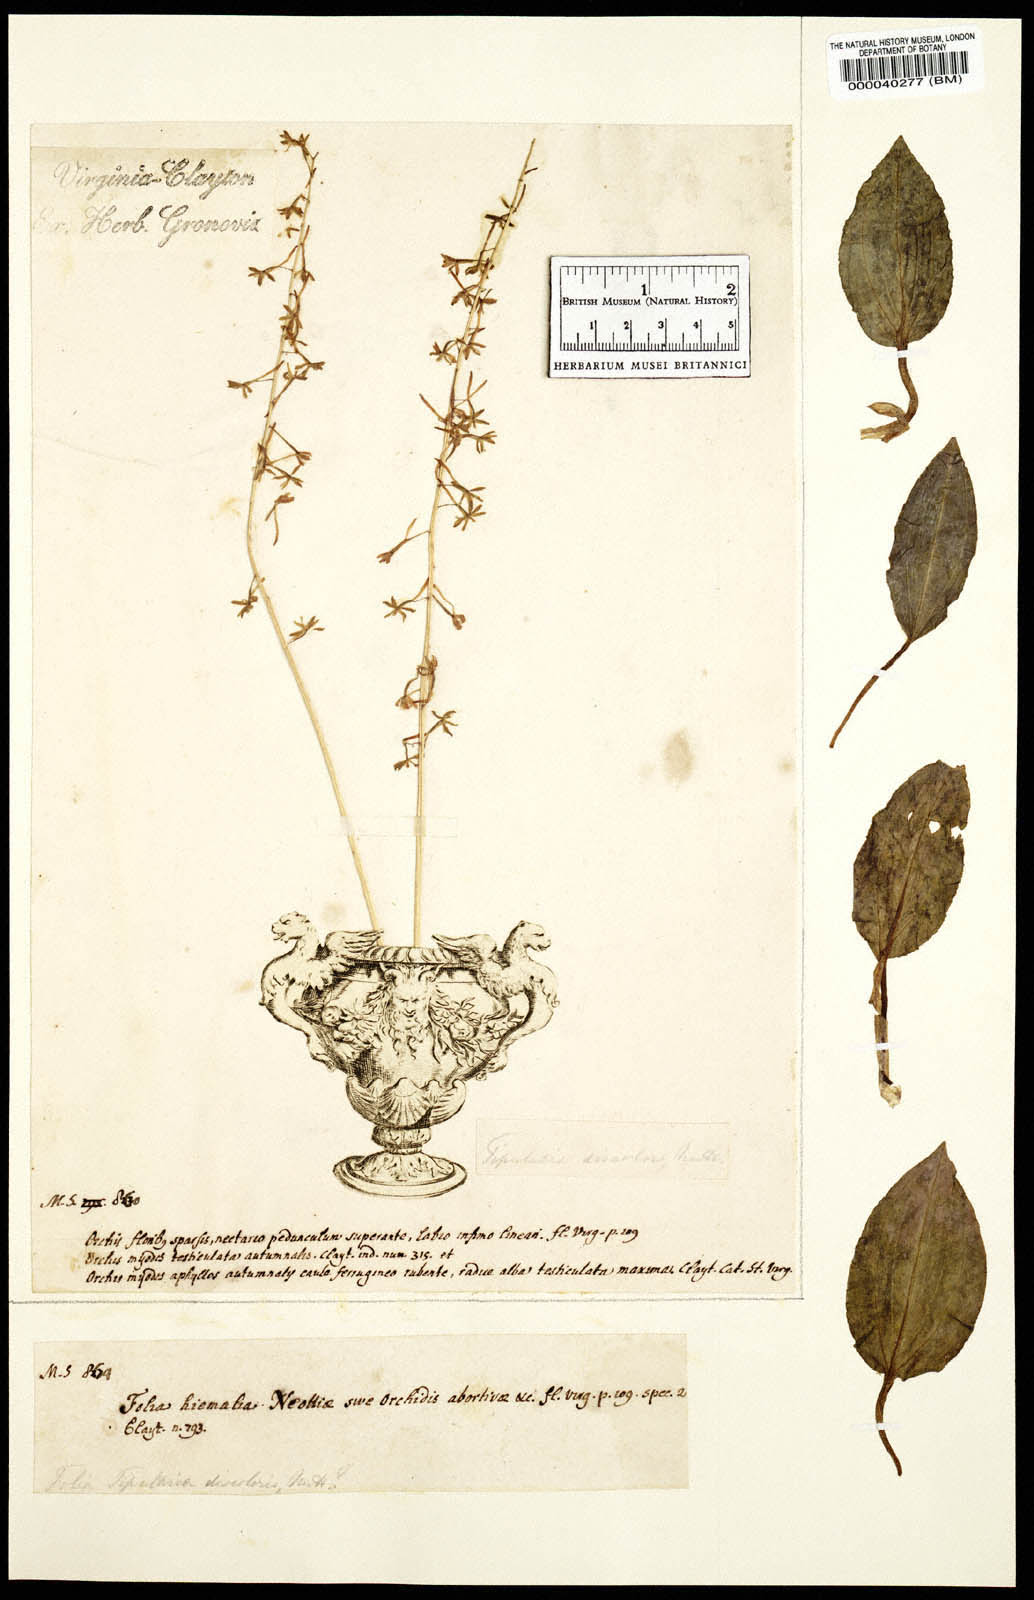 THE NATURAL HISTORY MUSEUM, LONDON
DEPARTMENT OF BOTANY
000040277 (BM)
Virginia-Clayton
Herb. Gronovii
1 2
BRITISH MUSEUM (NATURAL HISTORY)
1 2 3 4 5
HERBARIUM MUSEI BRITANNICI
Tipularia discolor, Nutt.
M.S. 860
Orchis floribq sparsis, nectario pedunculum superante, labio infimo lineari. fl. Virg. p. 109
Orchis myodes testiculata autumnalis. Clayt. ind. num. 315. et
Orchis myodes aphyllos autumnalis caule ferrugineo rubente, radice alba testiculata maxima. Clayt. Cat. St. Virg.
M.S 864
Folia hiemalia Neottiæ sive Orchidis abortivæ &c. fl. Virg. p. 109. spec. 2
Clayt. n. 793.
Folia Tipularia discoloris, Nutt.